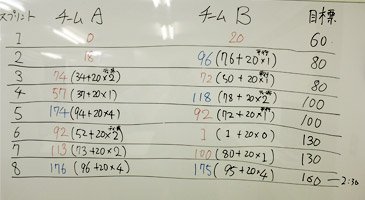 スプリント チームA チームB 目標
1 0 20 60
2 18 96(76+20×1) 80
3 74(34+20×2) 72(50+20×1) 80
4 57(37+20×1) 118(78+20×2) 100
5 174(94+20×4) 92(72+20×1) 100
6 92(52+20×2) 1(1+20×0) 130
7 113(73+20×2) 100(80+20×1) 130
8 176(96+20×4) 175(95+20×4) 160 — 2:30